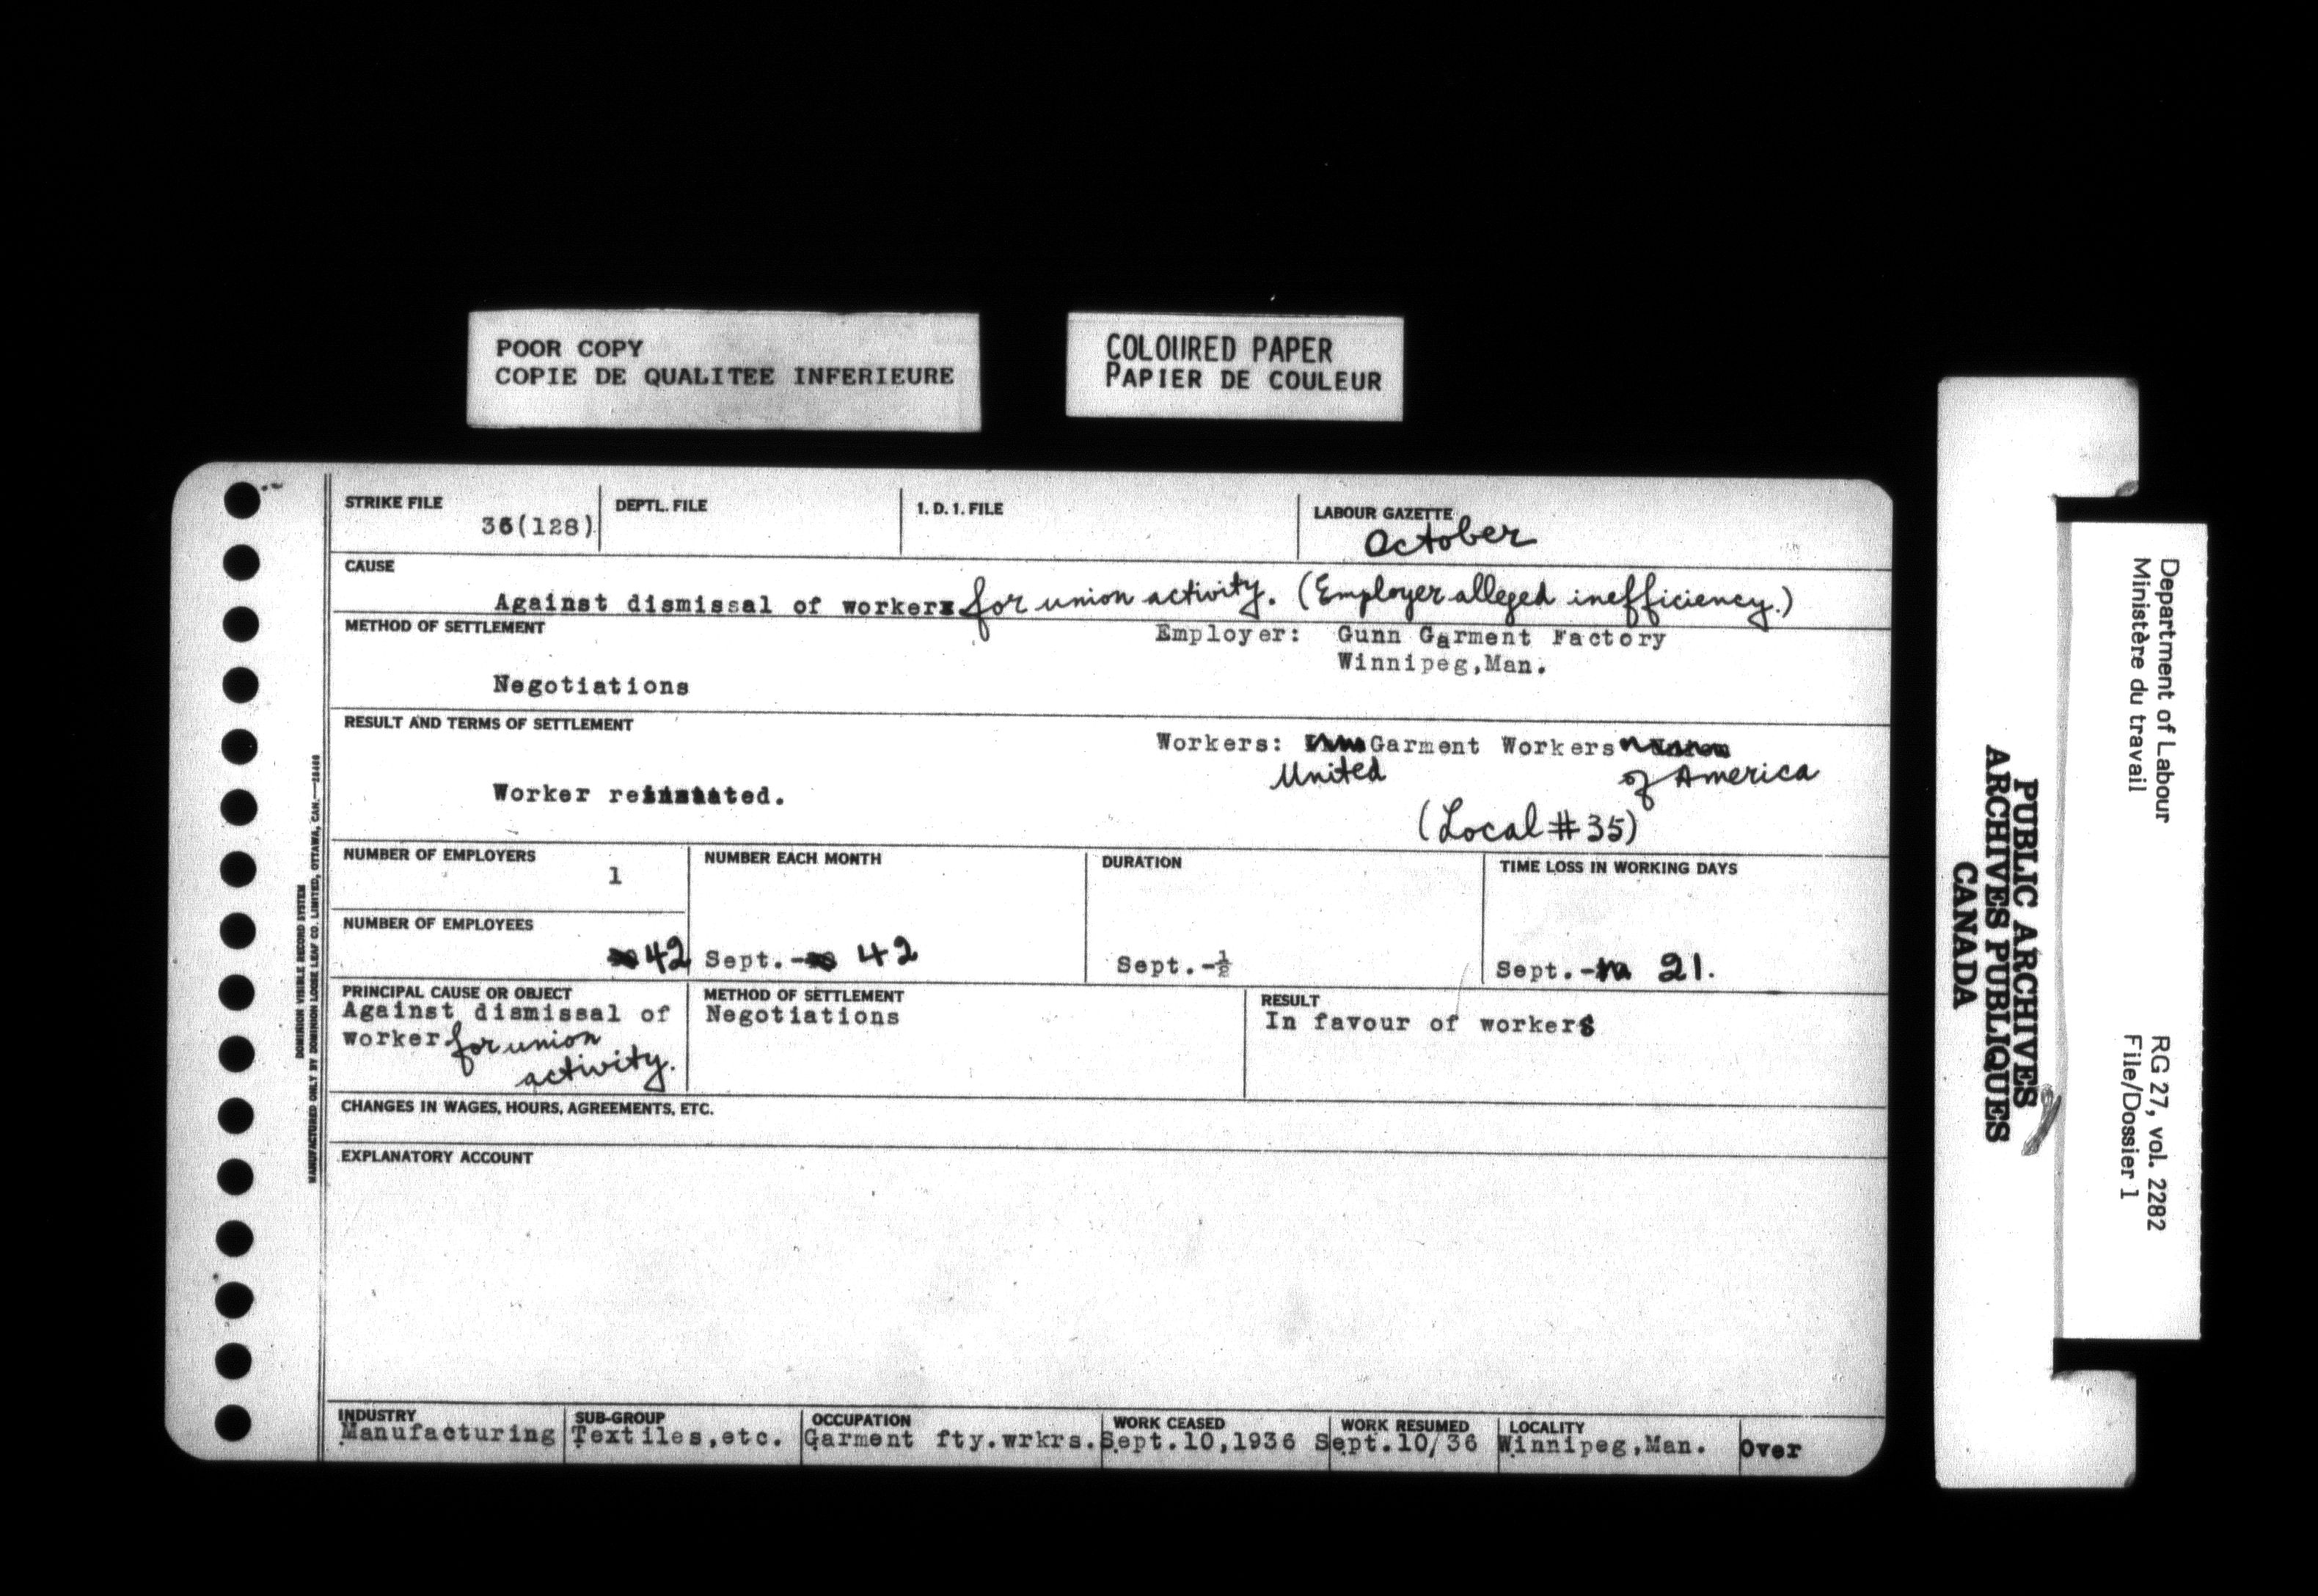 POOR COPY
COPIE DE QUALITEE INFERIEURE
COLOURED PAPER
PAPIER DE COULEUR
STRIKE FILE
36(128)
DEPTL. FILE
I. D. I. FILE
LABOUR GAZETTE
October
CAUSE
Against dismissal of worker for union activity. (Employer alleged inefficiency.)
METHOD OF SETTLEMENT
Employer: Gunn Garment Factory
Winnipeg,Man.
Negotiations
RESULT AND TERMS OF SETTLEMENT
Workers: Garment Workers
United of America
Worker reinstated.
(Local # 35)
NUMBER OF EMPLOYERS
1
NUMBER EACH MONTH
DURATION
TIME LOSS IN WORKING DAYS
NUMBER OF EMPLOYEES
42
Sept.- 42
Sept.-½
Sept.- 21.
PRINCIPAL CAUSE OR OBJECT
Against dismissal of
worker for union
activity.
METHOD OF SETTLEMENT
Negotiations
RESULT
In favour of workers
CHANGES IN WAGES, HOURS, AGREEMENTS, ETC.
EXPLANATORY ACCOUNT
INDUSTRY
Manufacturing
SUB-GROUP
Textiles,etc.
OCCUPATION
Garment fty.wrkrs.
WORK CEASED
Sept.10,1936
WORK RESUMED
Sept.10/36
LOCALITY
Winnipeg,Man.
Over
DOMINION VISIBLE RECORD SYSTEM
MANUFACTURED ONLY BY DOMINION LOOSE LEAF CO. LIMITED, OTTAWA, CAN.
Department of Labour
Ministère du travail
RG 27, vol. 2282
File/Dossier 1
PUBLIC ARCHIVES
ARCHIVES PUBLIQUES
CANADA